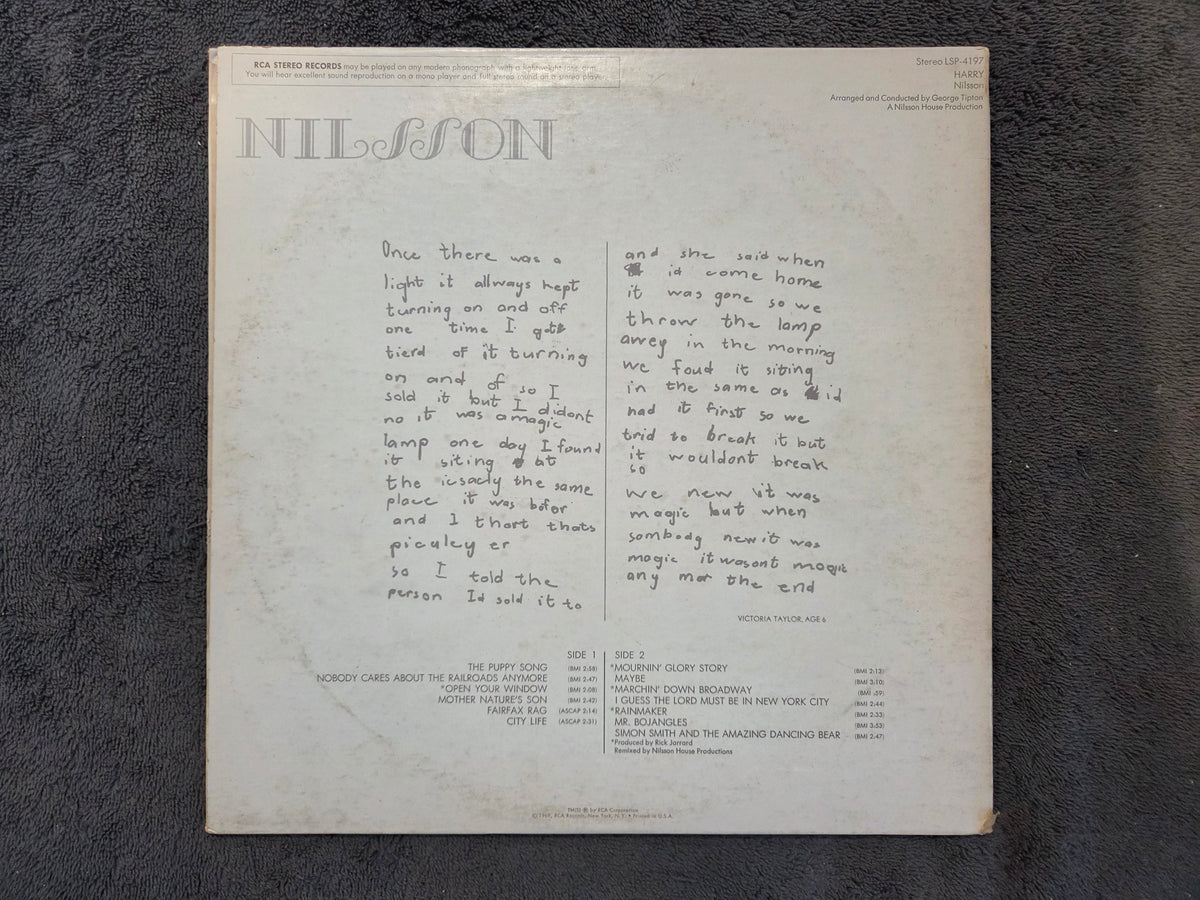 RCA STEREO RECORDS may be played on any modern phonograph with a lightweight tone arm.
You will hear excellent sound reproduction on a mono player and full stereo sound on a stereo player.
Stereo LSP-4197
HARRY
Nilsson
Arranged and Conducted by George Tipton
A Nilsson House Production
NILSSON
Once there was a
light it allways kept
turning on and off
one time I got
tierd of it turning
on and of so I
sold it but I didont
no it was a magic
lamp one day I found
it siting at
the icsacly the same
place it was bofor
and I thort thats
piculey er
so I told the
person Id sold it to
and she said when
id come home
it was gone so we
throw the lamp
awey in the morning
we foud it siting
in the same as id
had it first so we
trid to break it but
it wouldont break
so
we new it was
magic but when
sombody new it was
magic it wasont magic
any mor the end
VICTORIA TAYLOR, AGE 6
SIDE 1
THE PUPPY SONG (BMI 2:58)
NOBODY CARES ABOUT THE RAILROADS ANYMORE (BMI 2:47)
*OPEN YOUR WINDOW (BMI 2:08)
MOTHER NATURE'S SON (BMI 2:42)
FAIRFAX RAG (ASCAP 2:14)
CITY LIFE (ASCAP 2:31)
SIDE 2
*MOURNIN' GLORY STORY (BMI 2:13)
MAYBE (BMI 3:10)
*MARCHIN' DOWN BROADWAY (BMI :59)
I GUESS THE LORD MUST BE IN NEW YORK CITY (BMI 2:44)
*RAINMAKER (BMI 2:33)
MR. BOJANGLES (BMI 3:53)
SIMON SMITH AND THE AMAZING DANCING BEAR (BMI 2:47)
*Produced by Rick Jarrard
Remixed by Nilsson House Productions
TM(S) ® by RCA Corporation
© 1969, RCA Records, New York, N.Y. • Printed in U.S.A.